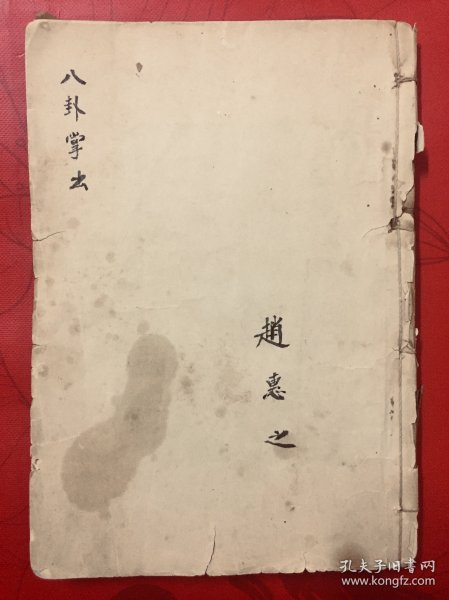 八卦掌
趙惠之
孔夫子旧书网
www.kongfz.com